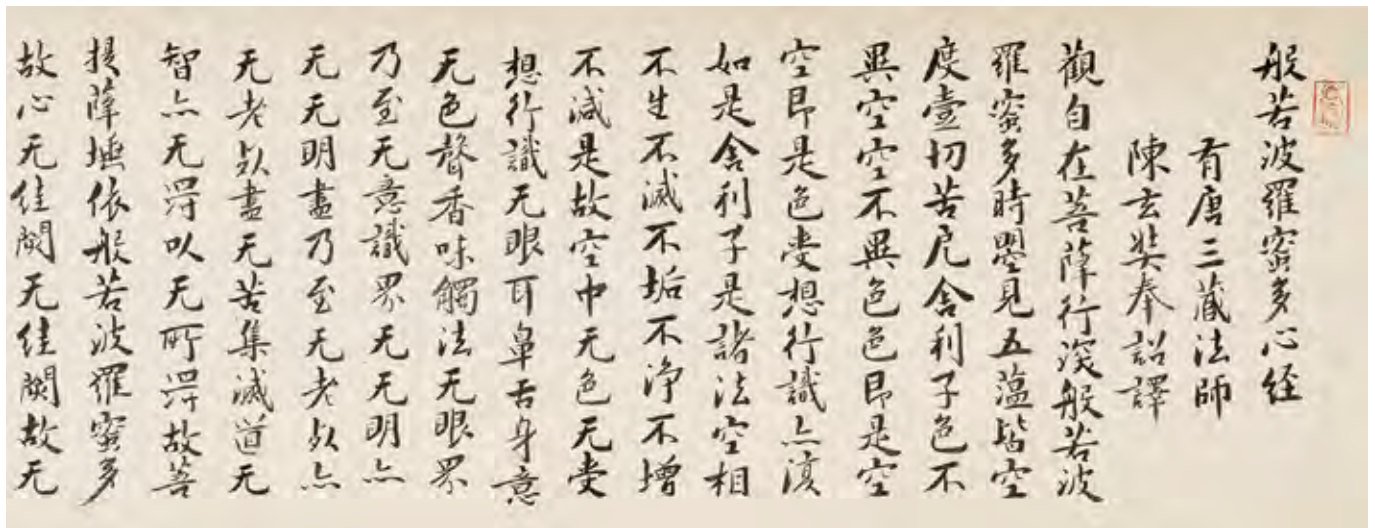 般若波羅蜜多心经
有唐三藏法師
陳玄奘奉詔譯
觀自在菩薩行深般若波
羅蜜多時照見五蕴皆空
度壹切苦厄舍利子色不
異空空不異色色即是空
空即是色受想行識亦復
如是舍利子是諸法空相
不生不滅不垢不淨不增
不減是故空中无色无受
想行識无眼耳鼻舌身意
无色聲香味觸法无眼界
乃至无意識界无无明亦
无无明盡乃至无老死亦
无老死盡无苦集滅道无
智亦无得以无所得故菩
提薩埵依般若波羅蜜多
故心无罣礙无罣礙故无